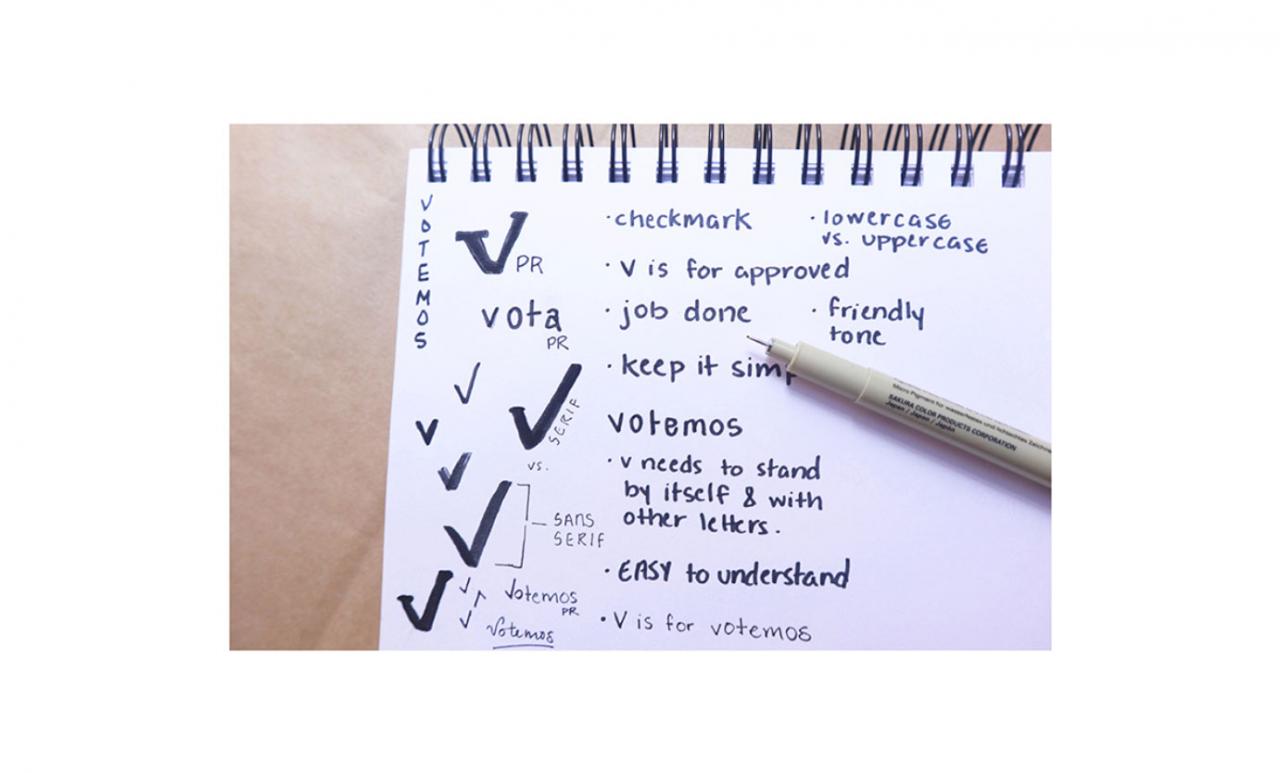 VOTEMOS
V PR
vota
PR
SERIF
vs.
SANS
SERIF
Votemos
PR
Votemos
· checkmark
· lowercase
vs. uppercase
· V is for approved
· job done
· friendly
tone
· keep it simp
votemos
· v needs to stand
by itself & with
other letters.
· EASY to understand
· V is for votemos
SAKURA COLOR PRODUCTS CORPORATION
Japan / Japon / Japón